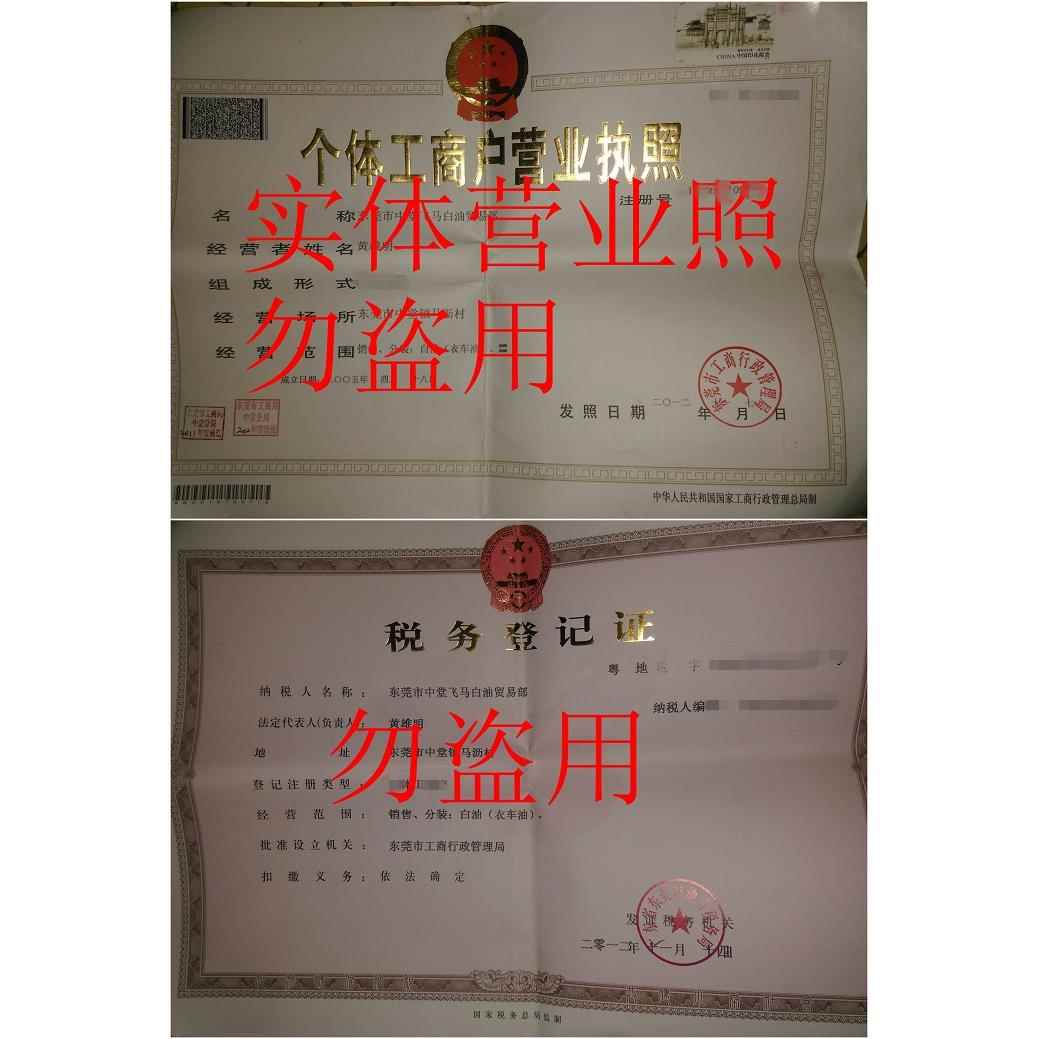 CHINA 中国印花税票
个体工商户营业执照
注册号
实体营业照
名 称 东莞市中堂飞马白油贸易部
经营者姓名 黄维明
组成形式
勿盗用
经营场所 东莞市中堂镇马沥村
经营范围 销售、分装：白油（衣车油）。
成立日期
发照日期 二〇一二 年 月 日
东莞市工商行政管理局
中华人民共和国国家工商行政管理总局制
税务登记证
粤 地 字 号
纳税人名称： 东莞市中堂飞马白油贸易部
纳税人编
法定代表人(负责人)： 黄维明
勿盗用
地 址： 东莞市中堂镇马沥村
登记注册类型：
经营范围： 销售、分装：白油（衣车油）。
批准设立机关： 东莞市工商行政管理局
扣缴义务： 依法确定
发证税务机关
二零一二年 十一月 十四日
国家税务总局监制